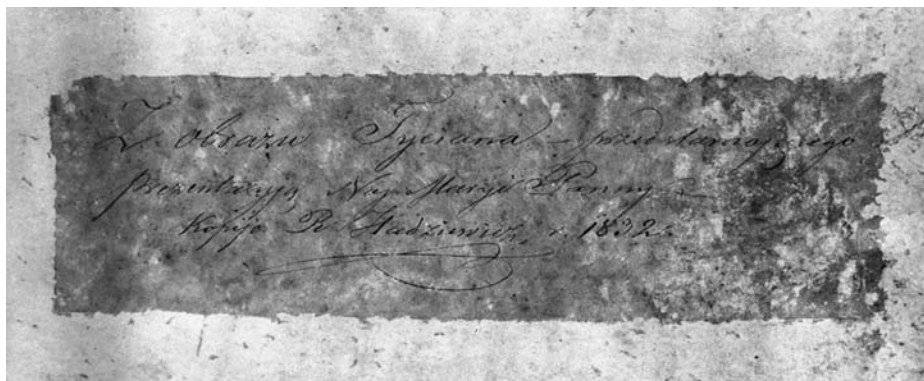 Z obrazu Tyciana – przedstawiającego
prezentacyją Naj. Maryi Panny –
Kopijo R Hadziewicz r. 1832.